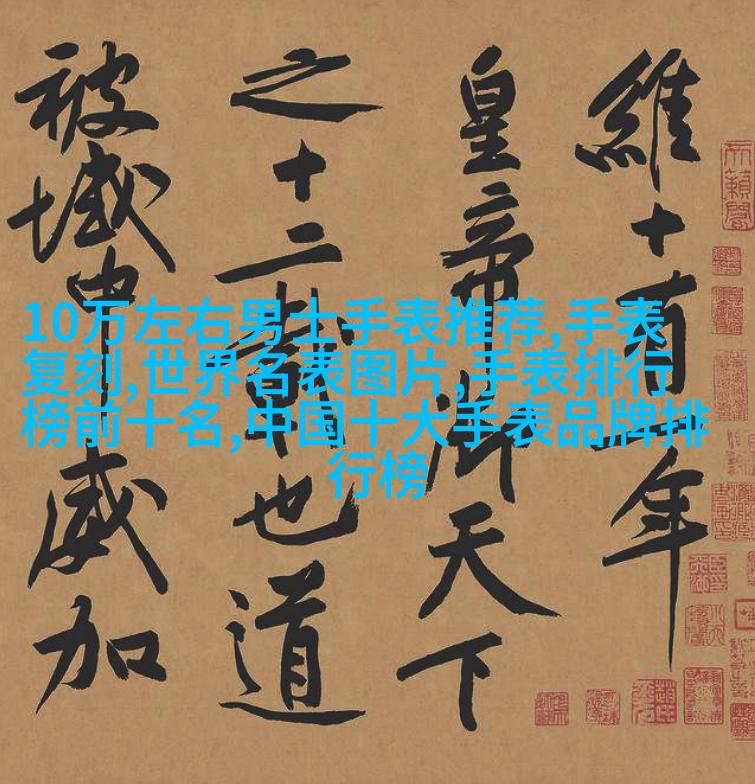 維十有一年
皇帝御天下
之十二載也道
被域中威加
10万左右男士手表推荐,手表
复刻,世界名表图片,手表排行
榜前十名,中国十大手表品牌排
行榜